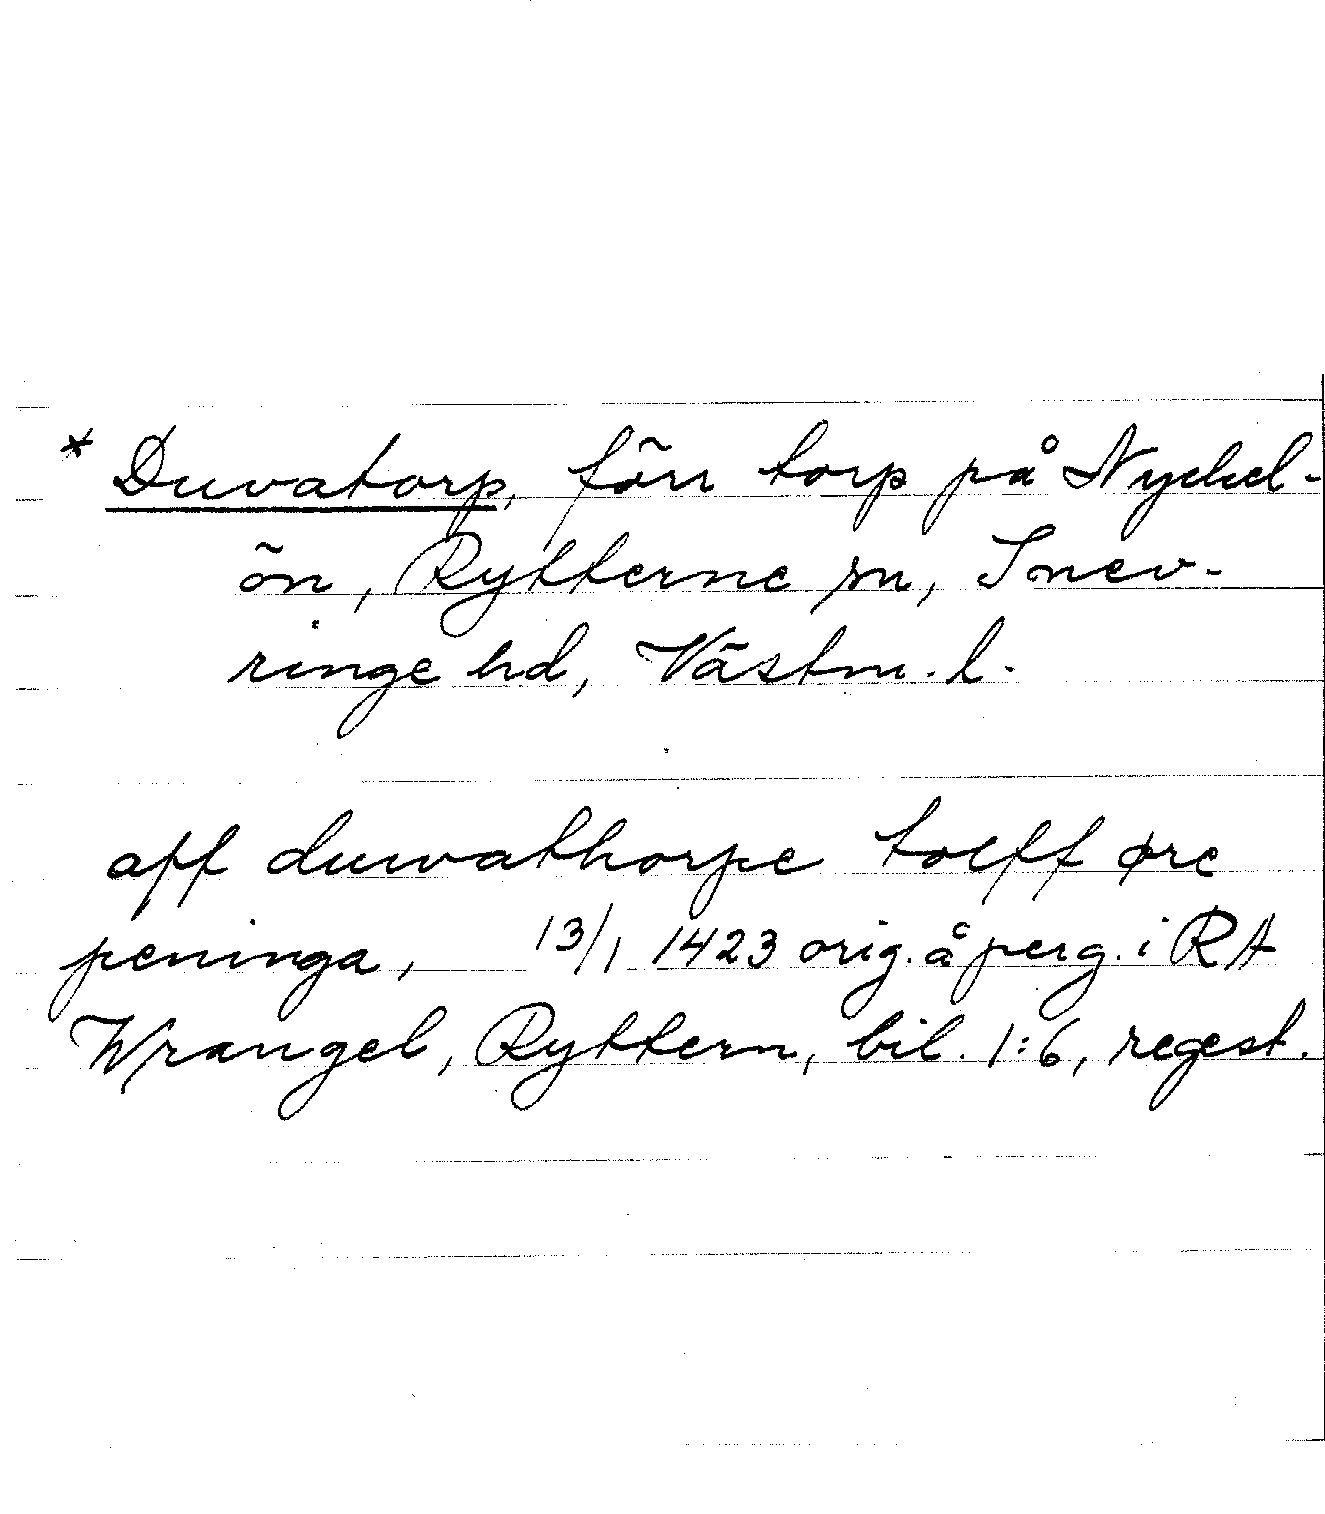 * Duvatorp, förr torp på Nyckel-
ön, Rytterne sn, Snev-
ringe hd, Västm. l.
aff duwathorpe tolff øre
peninga, 13/1 1423 orig. å perg. i RA
Wrangel, Ryttern, bil. 1:6, regest.